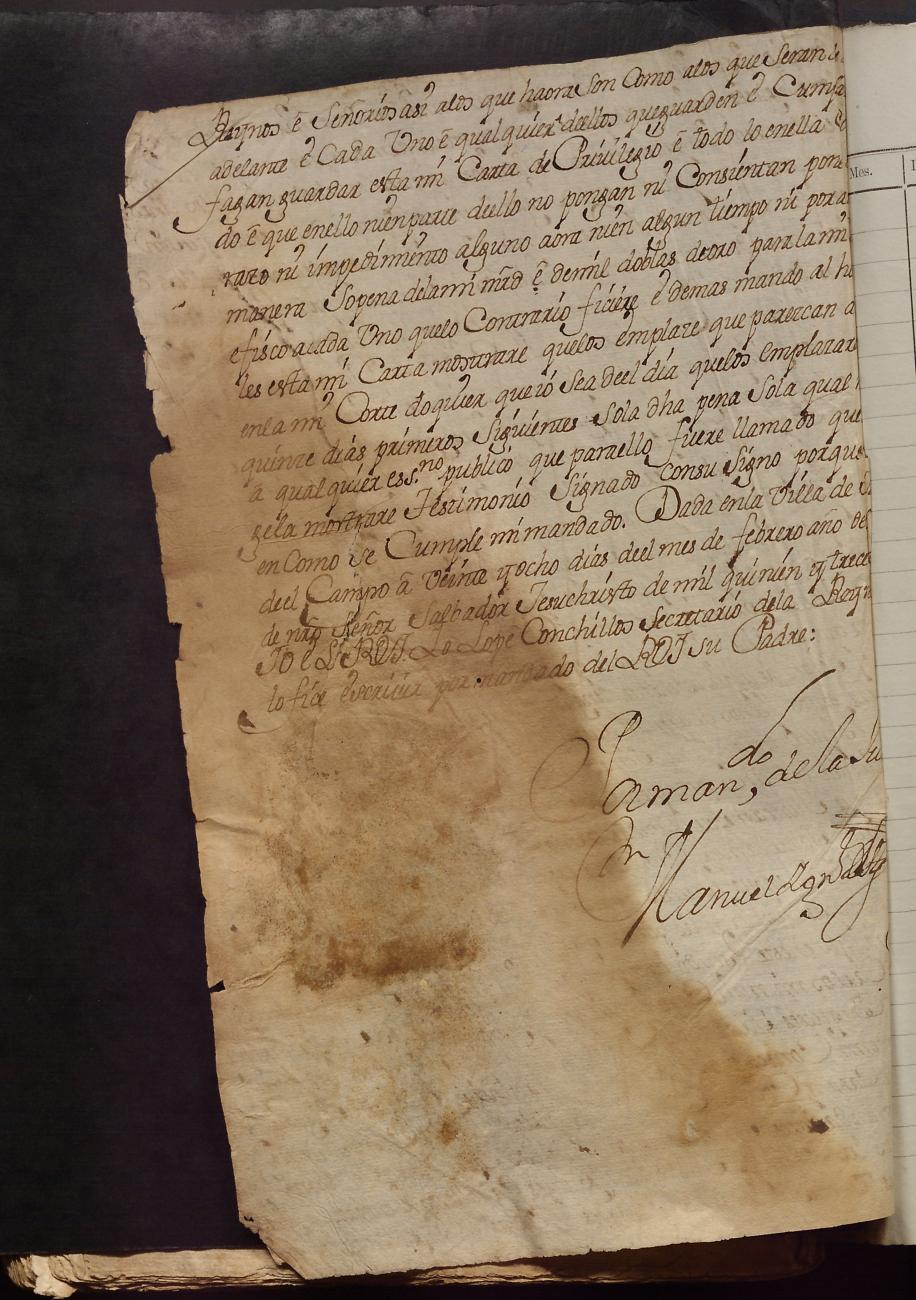 Reynos é Señorios asi alos que haora Son Como alos que Seran de
adelante é Cada Uno é qualquier dellos queguarden é Cumpla
fagan guardar esta mi Carta de Privilegio é todo lo enella
do é que enello nien parte deello no pongan ni Consientan pon
ni impedimento alguno aora nien algun tiempo ni por a
manera Sopena dela mi mrd é demil doblas deoro para la mi
efisco acada Uno quelo Contrario ficiere é demas mando al h
les esta mi Carta mostrare quelos emplaze que parezcan a
enla mi Corte doquier que io Sea deel dia quelos emplazar
quinze dias primeros Siguientes Sola dha pena Sola qual
a qualquier ess.no publico que paraello fuere llamado que
sela mostrare Testimonio Signado consu Signo porque
en Como se Cumple mi mandado. Dada enla Villa de
deel Campo á Veinte yocho dias deel mes de febrero año de
de nro Señor Salbador Jesuchristo de mil quinien trece
Io el Lope Conchillos Secretario dela Reyn
lo fice escrivir por mandado del REI su Padre:
Arman,do dela
Manuel
Mes.